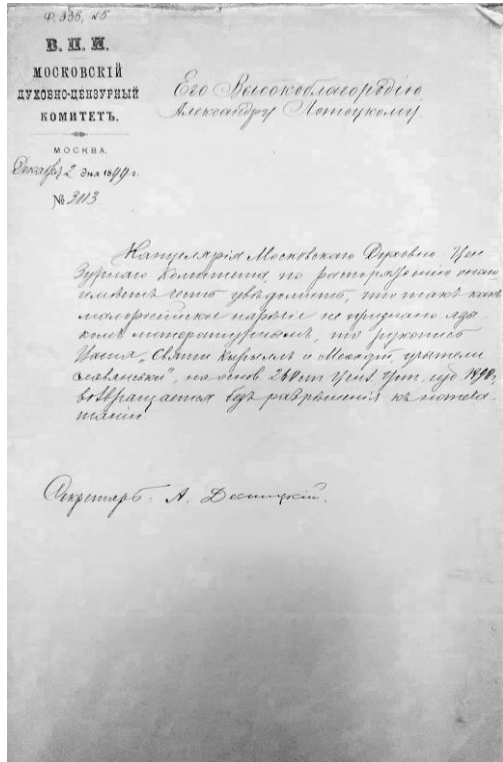 Ф. 336, 25
В. П. И.
МОСКОВСКІЙ
ДУХОВНО-ЦЕНЗУРНЫЙ
КОМИТЕТЪ.
МОСКВА.
Декабря 2 дня 1899 г.
№ 3113
Его Высокоблагородію
Александру Лотоцкому.
Канцелярія Московскаго Духовно-Цен
зурнаго Комитета, по распоряженію онаго
имѣетъ честь увѣдомить, что такъ какъ
малороссійское нарѣчіе не признано язы-
комъ литературнымъ, то рукопись
Ваша „Святи Кирыллъ и Мефодій, учытели
славянськи", на основ. 260 ст. Ценз. Уст. изд. 1890 г.
возвращается безъ разрѣшенія къ напеча-
танію.
Секретарь: А.